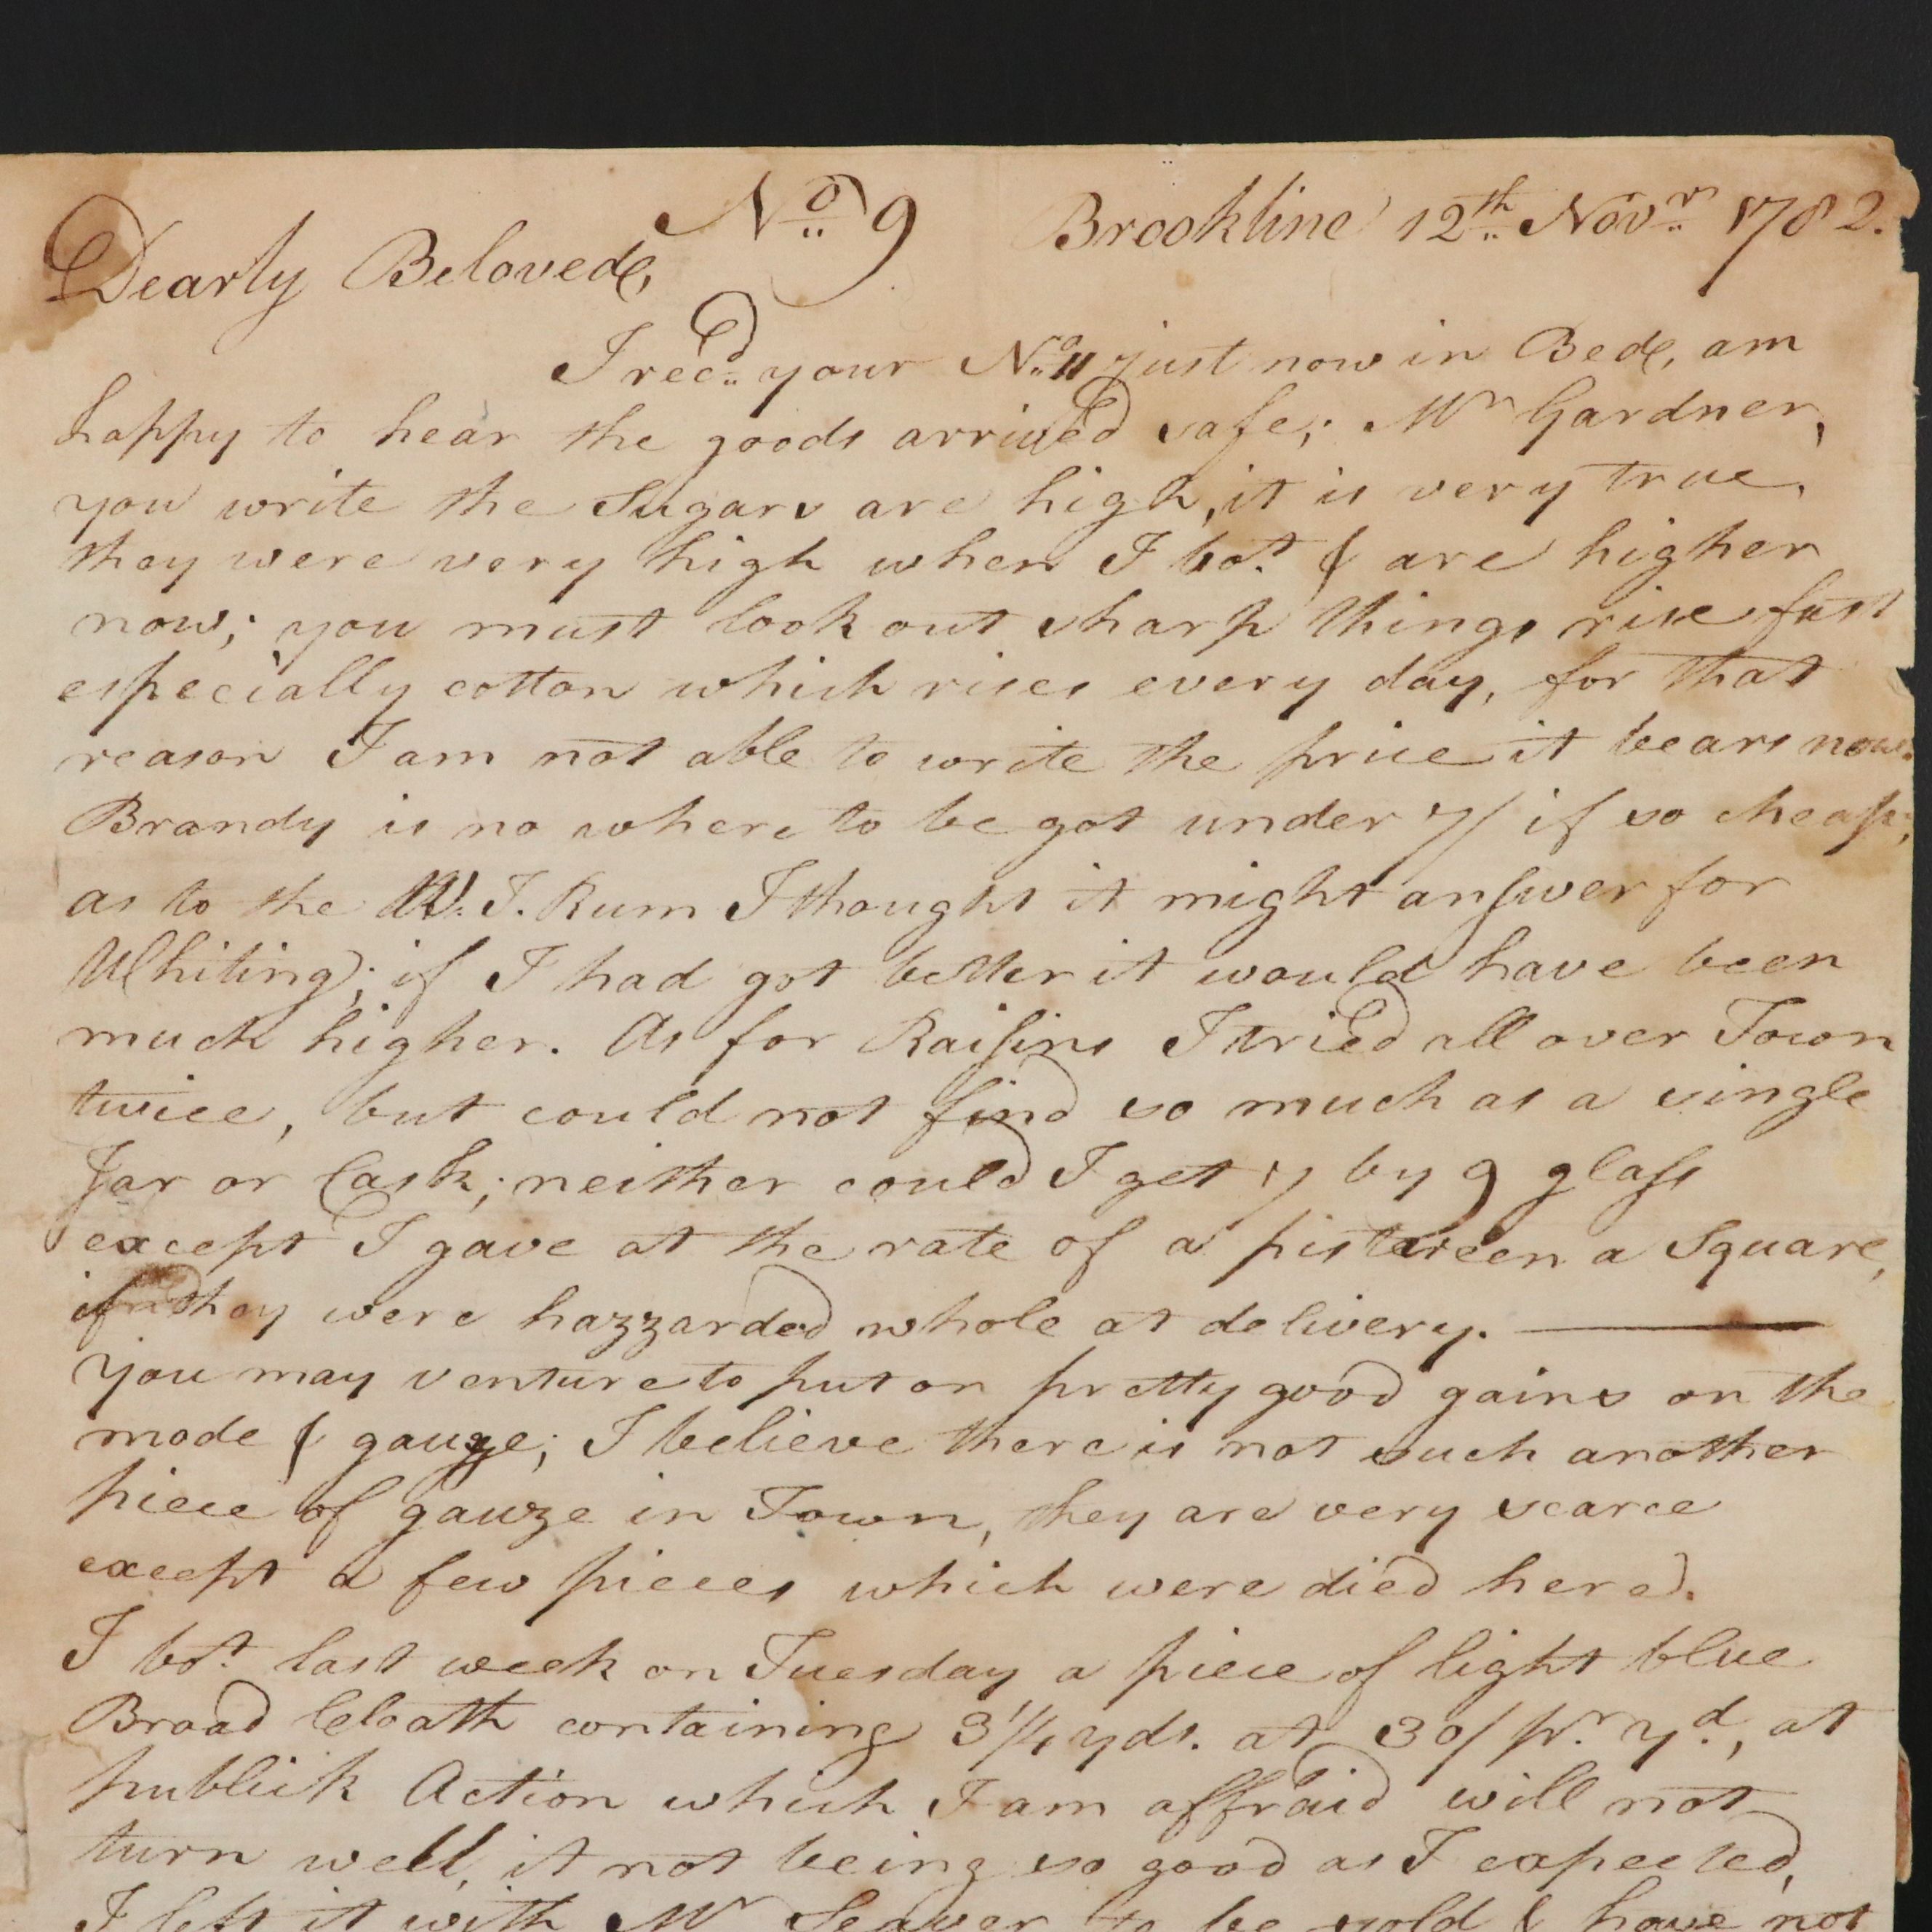 No. 9 Brookline 12th Novr 1782.
Dearly Beloved,
I recd your No. 11 just now in Bed, am
happy to hear the goods arrived safe; Mr Gardner,
you write the Sugars are high, it is very true,
they were very high when I bot. & are higher
now; you must look out sharp things rise fast
especially cotton which rises every day, for that
reason I am not able to write the price it bears now.
Brandy is no where to be got under 7/ if so cheap;
as to the W. I. Rum I thought it might answer for
Whiting; if I had got better it would have been
much higher. As for Raisins I tried all over Town
twice, but could not find so much as a single
Jar or Cask; neither could I get 7 by 9 glass
except I gave at the rate of a pistereen a Square,
if they were hazzarded whole at delivery.
You may venture to put on pretty good gains on the
mode & gauze; I believe there is not such another
piece of gauze in Town, they are very scarce
except a few pieces which were died here.
I bot. last week on Tuesday a piece of light blue
Broad Cloath containing 3 1/4 yds. at 30/ pr. yd., at
publick Action which I am affraid will not
turn well, it not being so good as I expected,
I left it with Mr Seaver to be sold & have not